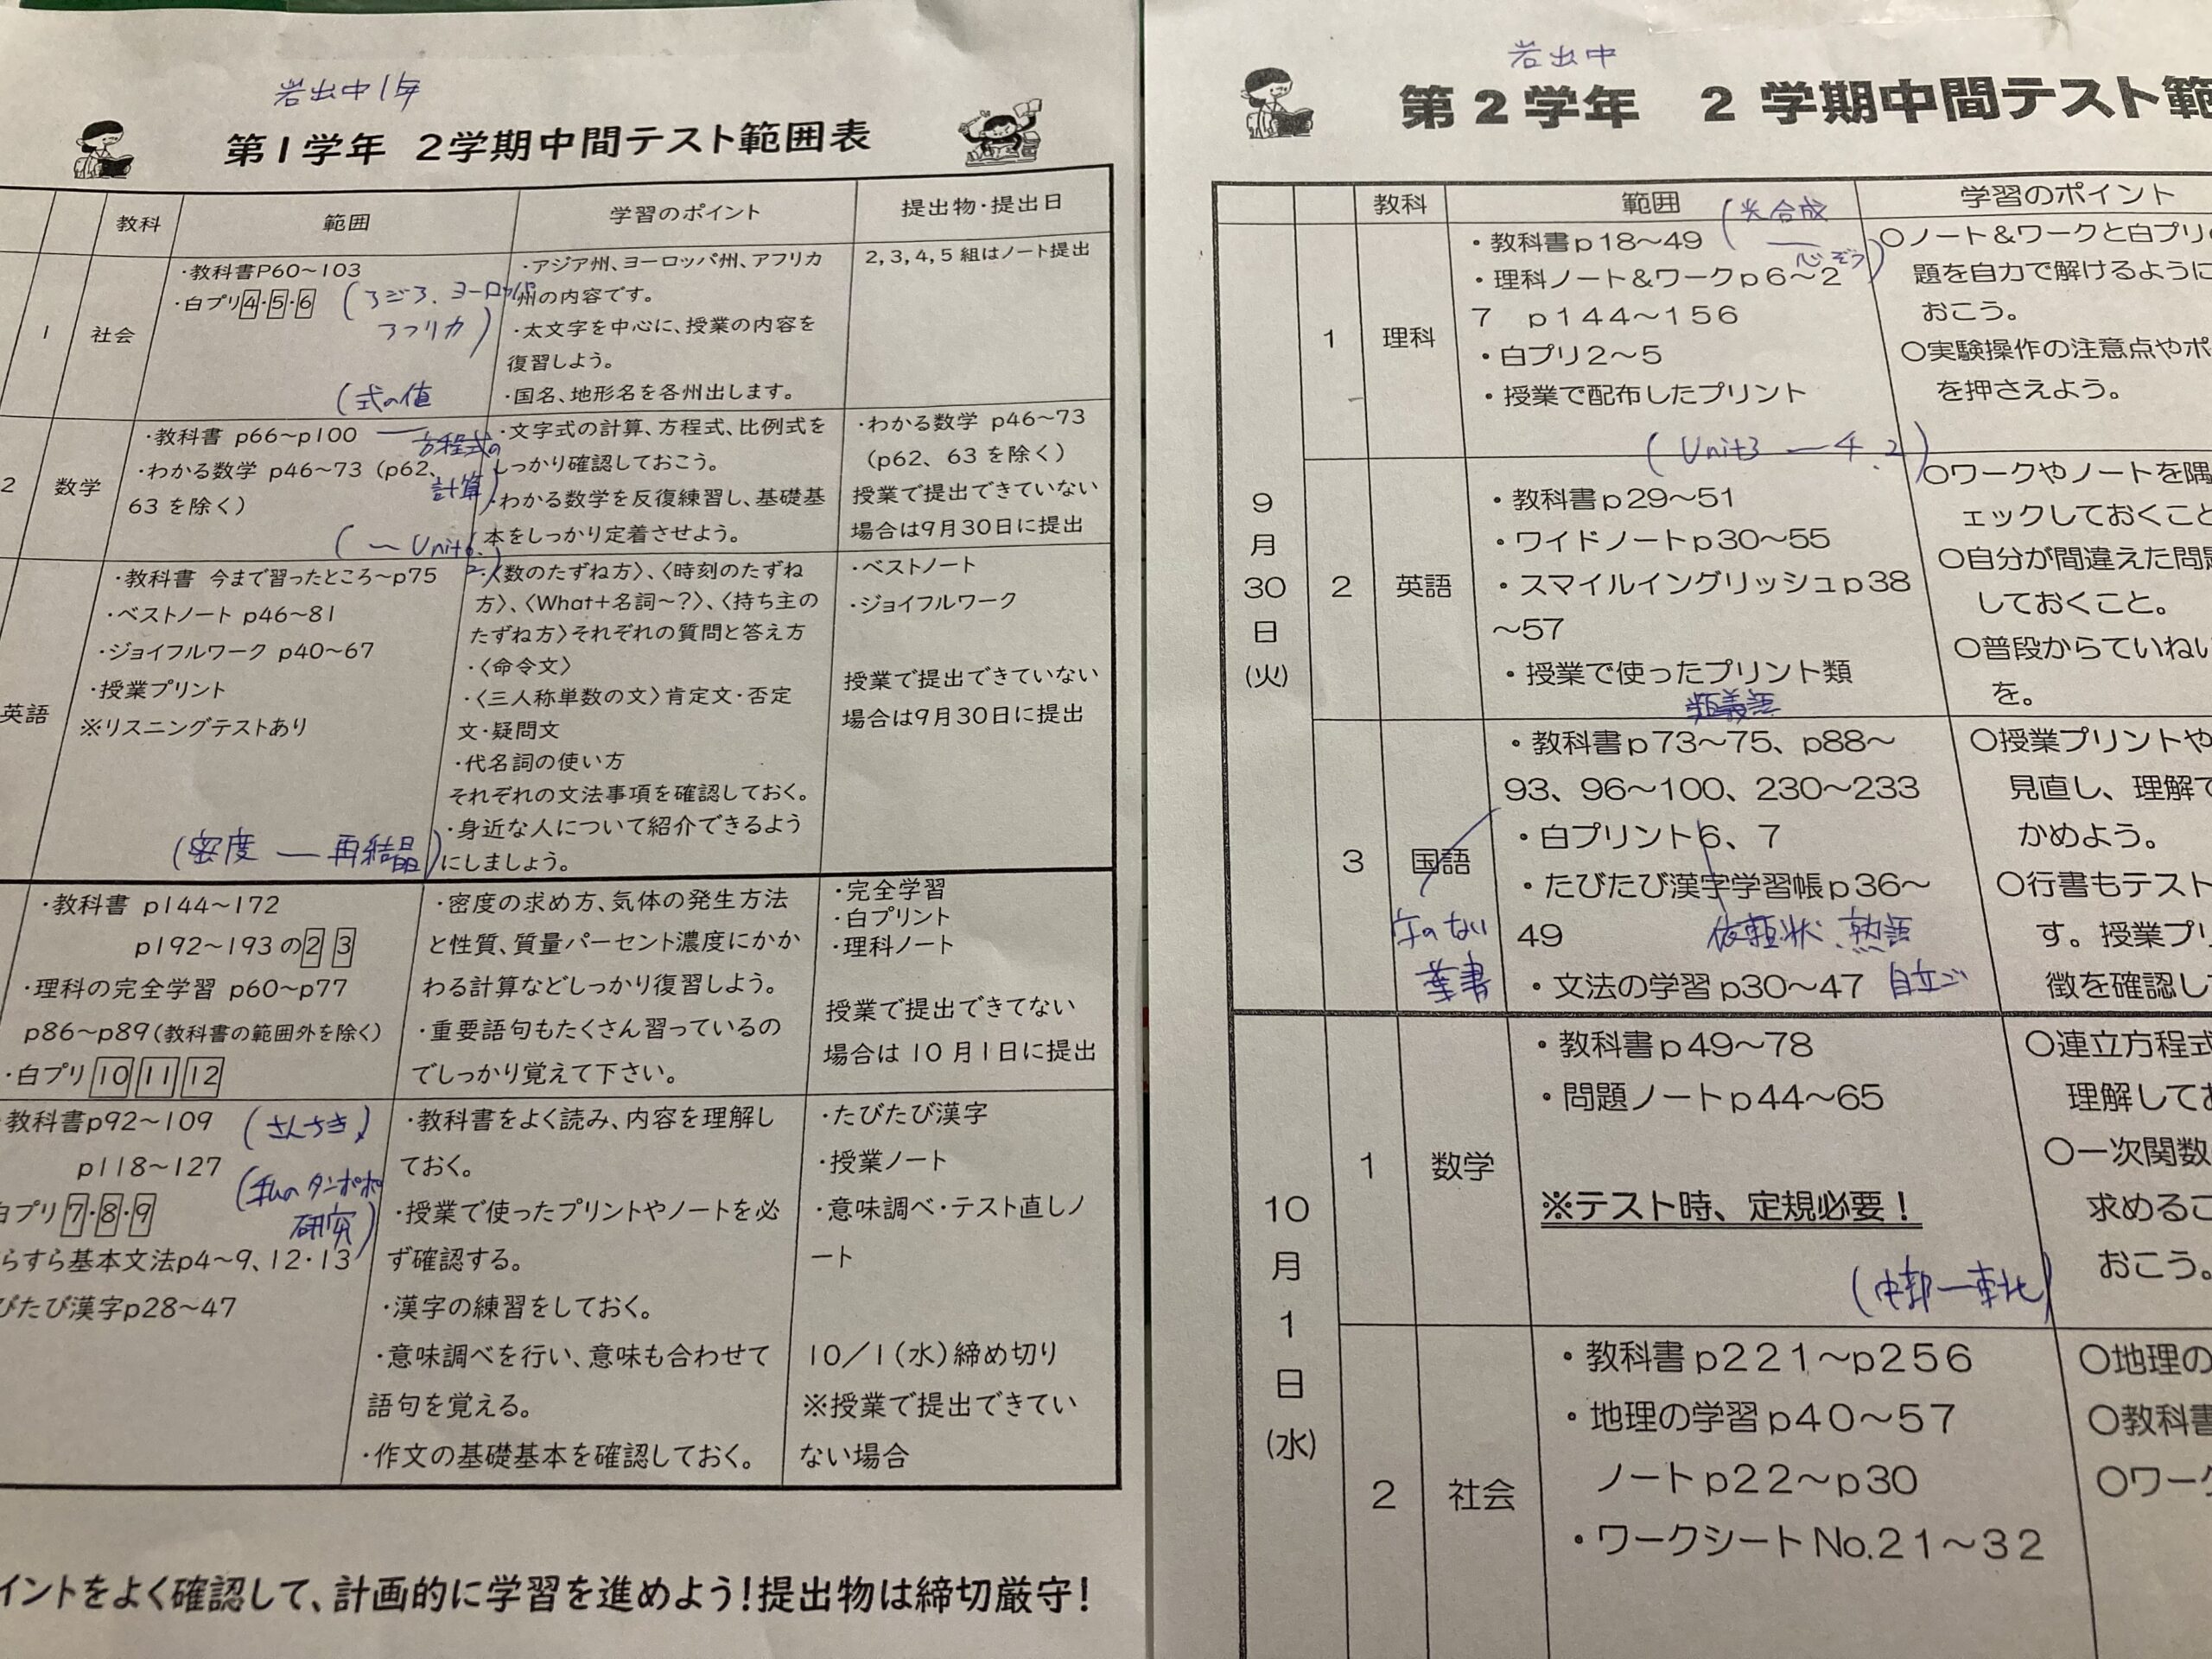 岩出中1年
第1学年 2学期中間テスト範囲表
教科
範囲
学習のポイント
提出物・提出日
1
社会
・教科書P60~103
・白プリ4・5・6
(アジア、ヨーロッパ
アフリカ)
・アジア州、ヨーロッパ州、アフリカ
州の内容です。
・太文字を中心に、授業の内容を
復習しよう。
・国名、地形名を各州出します。
2,3,4,5組はノート提出
2
数学
(式の値
― 方程式の
計算)
・教科書 p66~p100
・わかる数学 p46~73 (p62、
63を除く)
・文字式の計算、方程式、比例式を
しっかり確認しておこう。
・わかる数学を反復練習し、基礎基
本をしっかり定着させよう。
・わかる数学 p46~73
(p62、63を除く)
授業で提出できていない
場合は9月30日に提出
英語
(~Unit6.
2)
・教科書 今まで習ったところ~p75
・ベストノート p46~81
・ジョイフルワーク p40~67
・授業プリント
※リスニングテストあり
・〈数のたずね方〉、〈時刻のたずね
方〉、〈What+名詞~?〉、〈持ち主の
たずね方〉それぞれの質問と答え方
・〈命令文〉
・〈三人称単数の文〉肯定文・否定
文・疑問文
・代名詞の使い方
それぞれの文法事項を確認しておく。
・身近な人について紹介できるよう
にしましょう。
・ベストノート
・ジョイフルワーク
授業で提出できていない
場合は9月30日に提出
(密度 ― 再結晶)
・教科書 p144~172
p192~193の2 3
・理科の完全学習 p60~p77
p86~p89(教科書の範囲外を除く)
・白プリ10 11 12
・密度の求め方、気体の発生方法
と性質、質量パーセント濃度にかか
わる計算などしっかり復習しよう。
・重要語句もたくさん習っているの
でしっかり覚えて下さい。
・完全学習
・白プリント
・理科ノート
授業で提出できてない
場合は10月1日に提出
・教科書p92~109
(さんちき)
p118~127
(私のタンポポ
研究)
白プリ7・8・9
らすら基本文法p4~9、12・13
びたび漢字p28~47
・教科書をよく読み、内容を理解し
ておく。
・授業で使ったプリントやノートを必
ず確認する。
・漢字の練習をしておく。
・意味調べを行い、意味も合わせて
語句を覚える。
・作文の基礎基本を確認しておく。
・たびたび漢字
・授業ノート
・意味調べ・テスト直しノ
ート
10/1(水)締め切り
※授業で提出できてい
ない場合
イントをよく確認して、計画的に学習を進めよう!提出物は締切厳守!
岩出中
第2学年 2学期中間テスト範
教科
範囲
学習のポイント
9
月
30
日
(火)
1
理科
(光合成
― 心ぞう)
・教科書p18~49
・理科ノート&ワークp6~2
7 p144~156
・白プリ2~5
・授業で配布したプリント
○ノート&ワークと白プリの
題を自力で解けるように
おこう。
○実験操作の注意点やポ
を押さえよう。
2
英語
(Unit3 ― 4.2)
・教科書p29~51
・ワイドノートp30~55
・スマイルイングリッシュp38
~57
・授業で使ったプリント類
○ワークやノートを隅
ェックしておくこと
○自分が間違えた問題
しておくこと。
○普段からていねい
を。
3
国語
・教科書p73~75、p88~
93、96~100、230~233
・白プリント6、7
・たびたび漢字学習帳p36~
49
・文法の学習p30~47
字のない
葉書
依頼状、熟語
自立ご
○授業プリントや
見直し、理解で
かめよう。
○行書もテスト
す。授業プリ
徴を確認して
10
月
1
日
(水)
1
数学
・教科書p49~78
・問題ノートp44~65
※テスト時、定規必要!
○連立方程式
理解してお
○一次関数
求めるこ
おこう。
2
社会
(中部―東北)
・教科書p221~p256
・地理の学習p40~57
ノートp22~p30
・ワークシートNo.21~32
○地理の
○教科書
○ワーク